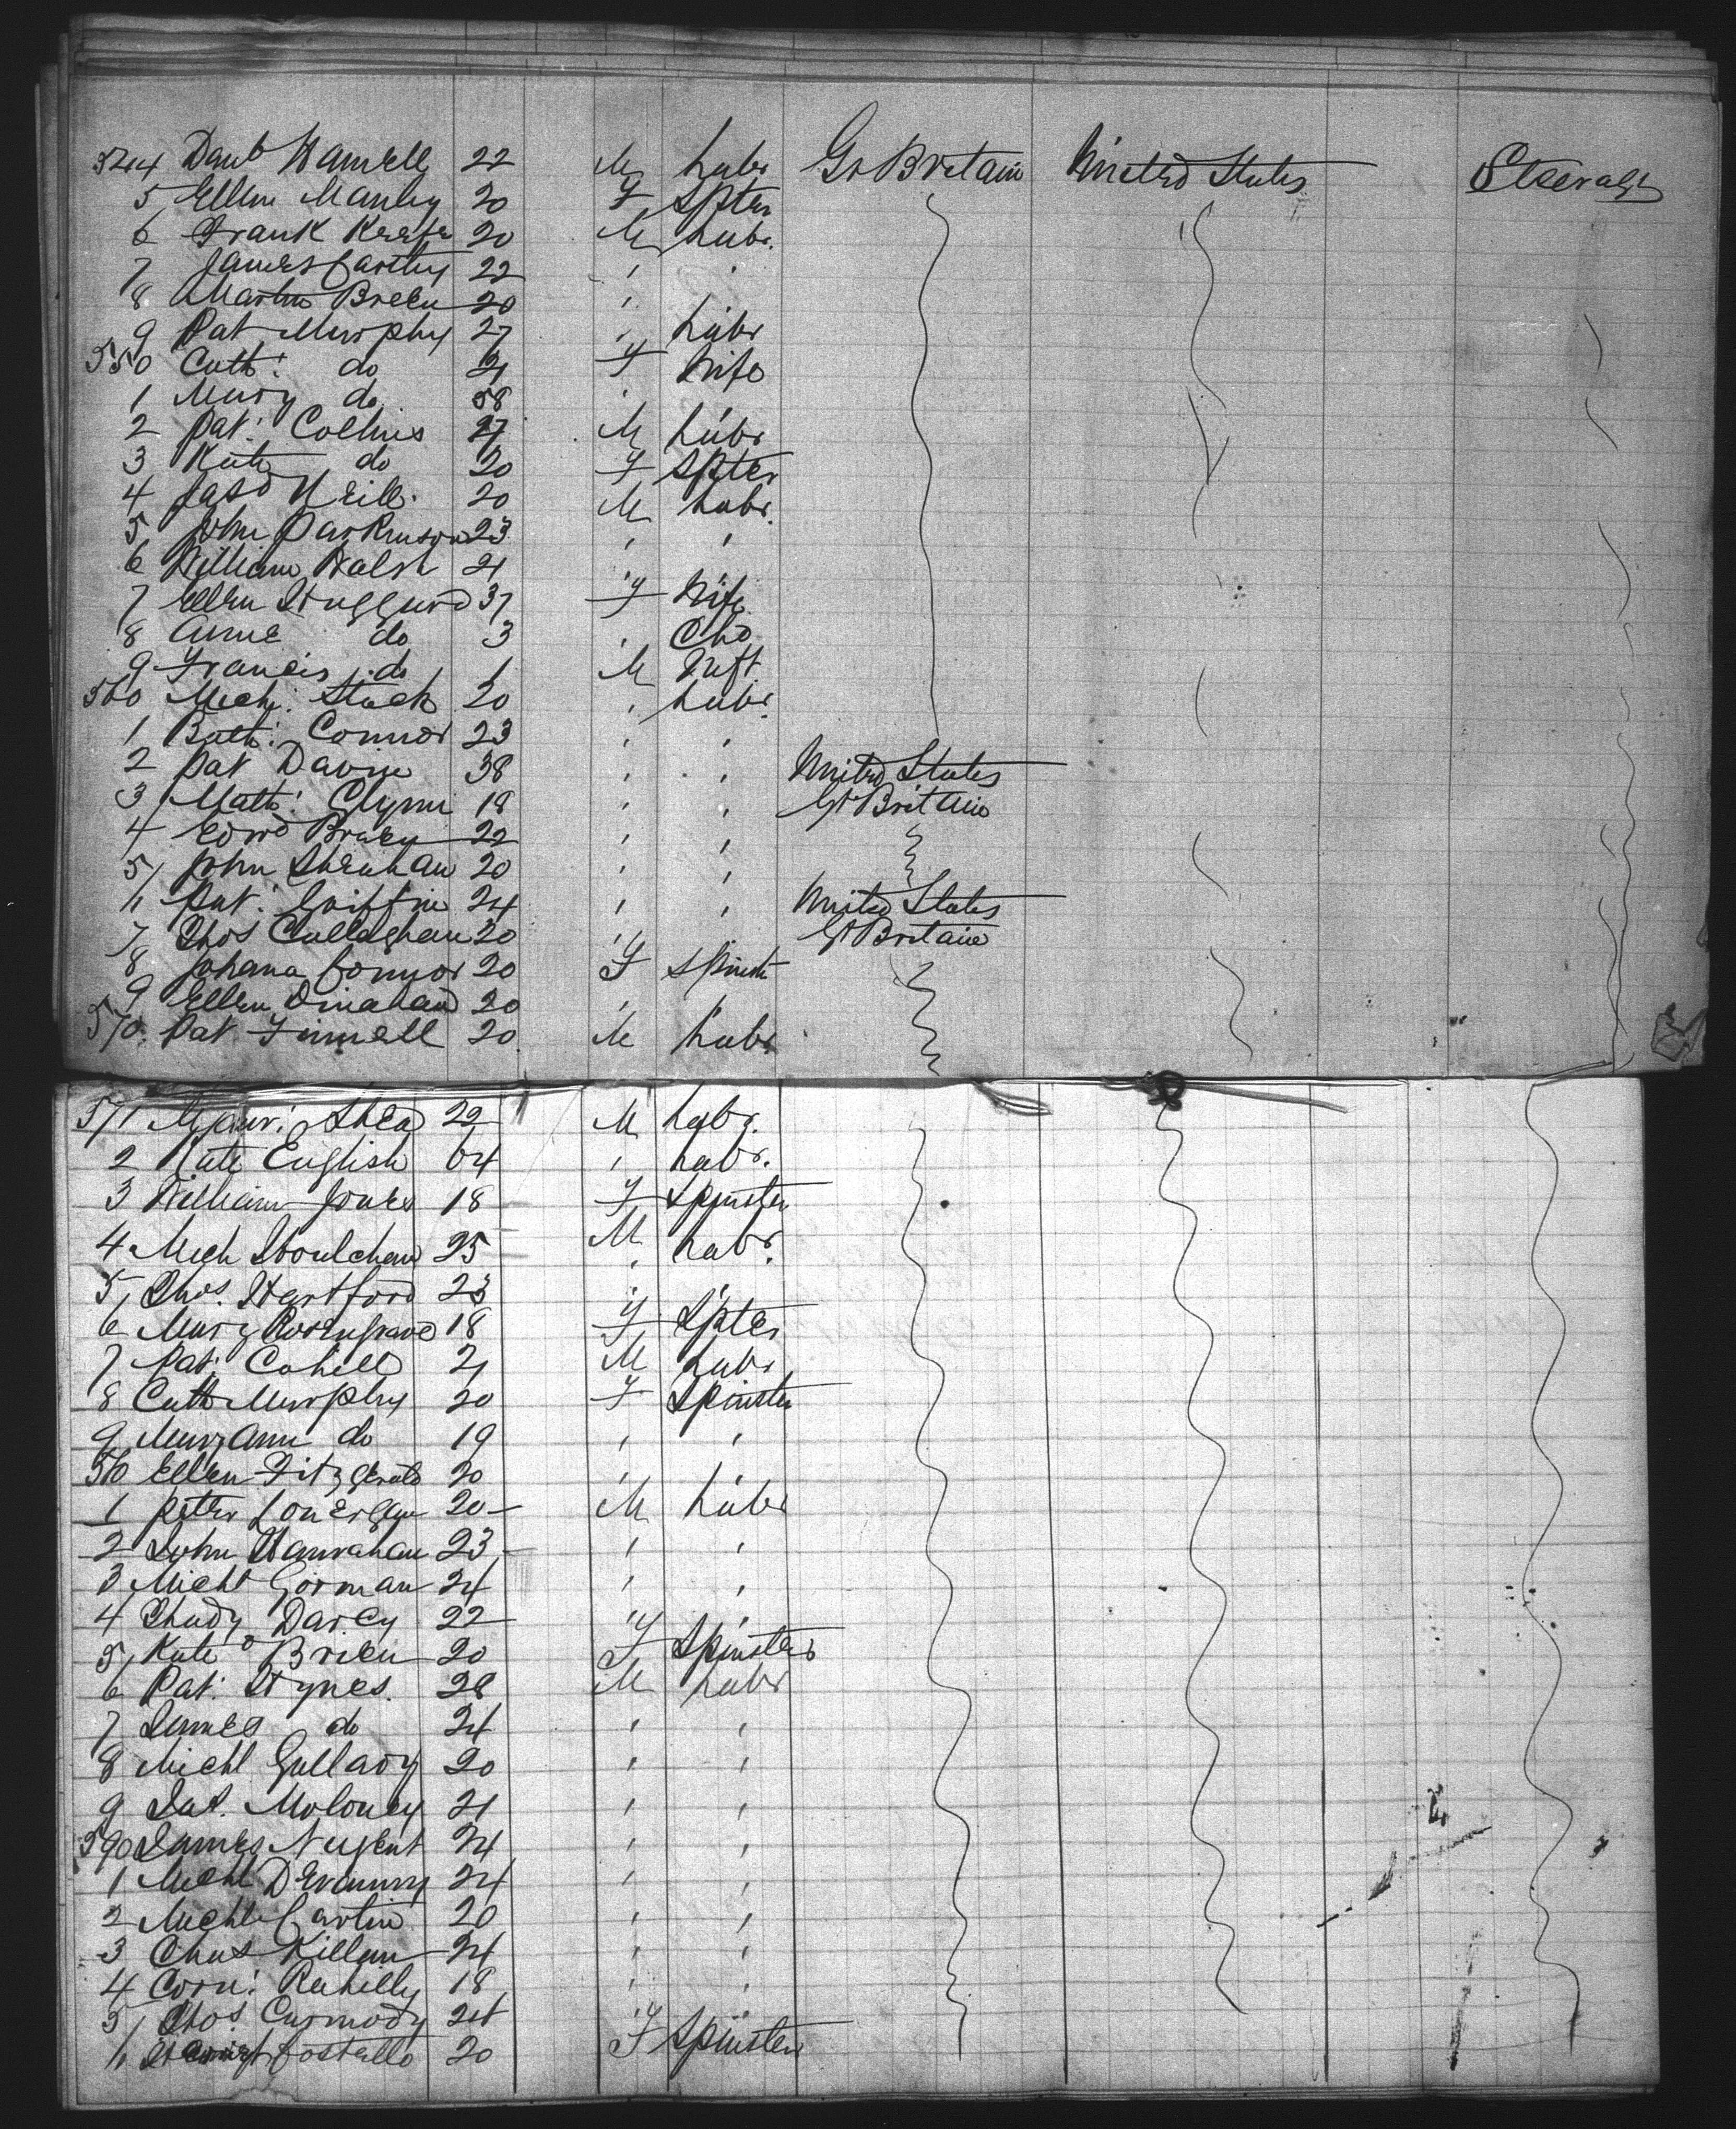 544 Danl Hamell 22 M Labr Gt Britain United States Steerage
5 Ellen Manley 20 F Spter
6 Frank Keefe 20 M Labr.
7 James Carthy 22 " "
8 Martin Breen 20 "
9 Pat Murphy 27 " Labr
550 Cath: do 21 F Wife
1 Mary do 58 "
2 Pat: Collins 27 M Labr
3 Kate do 20 F Spter
4 Jas O Neill 20 M Labr.
5 John Parkinson 23 " "
6 William Walsh 21 "
7 Ellen 37 F Wife
8 Anne do 3 " Chd
9 Francis do 1 M Inft
560 Mich: Stack 20 " Labr.
1 Batt: Connor 23 " "
2 Pat Davin 38 " " United States
3 Matt: Glynn 18 " " Gt Britain
4 Edwd 22 " "
5 John Shenhan 20 " "
6 Pat: Griffin 24 " " United States
7 Thos Callaghan 20 " Gt Britain
8 Johana Connor 20 F Spinstr
9 Ellen Dinahan 20 " "
570 Pat Finnell 20 M Labr
571 Maur: Shea 22 M Labr.
2 Kate English 64 " Labr.
3 William Jones 18 F Spinster
4 Mich Houlehan 25 M Labr.
5 Thos. Hartford 23 " "
6 Mary Rosengrave 18 F Spter
7 Pat: Cahill 21 M Labr
8 Cath Murphy 20 F Spinster
9 Mary Ann do 19 " "
580 Ellen Fitzgerald 20 " "
1 Peter Lonergan 20 M Labr
2 John Hanrahan 23 " "
3 Michl Gorman 24 " "
4 Thady Darcy 22 " "
5 Kate O Brien 20 F Spinster
6 Pat: Hynes. 28 M Labr
7 James do 24 " "
8 Michl Gullady 20 " "
9 Jas. Moloney 21 " "
590 James Nugent 24 " "
1 Michl Devanny 24 " "
2 Michl Cartin 20 " "
3 Chas Killian 24 " "
4 Corn: Rahilly 18 " "
5 Thos. Carmody 24 " "
6 Costello 20 F Spinster